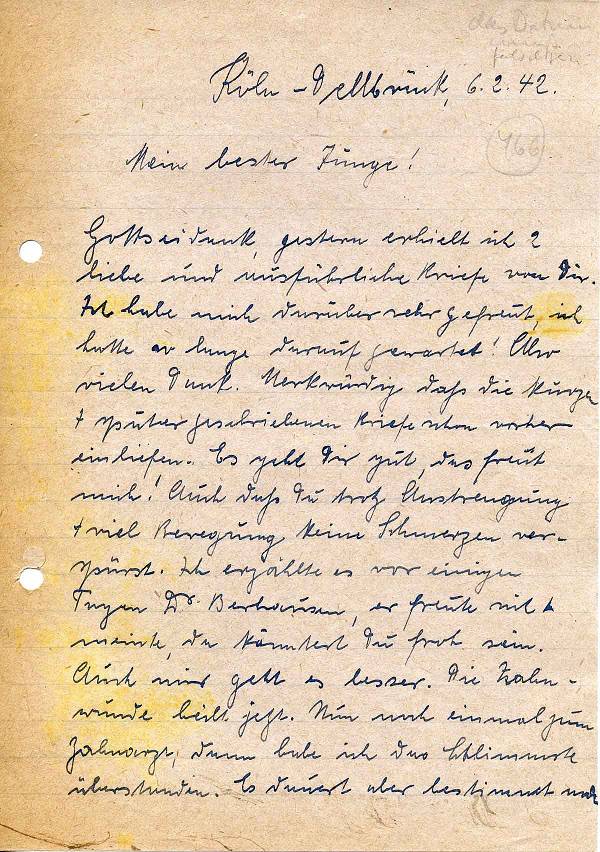 das Datum
Köln-Dellbrück, 6.2.42.
166
Mein bester Junge!
Gottseidank, gestern erhielt ich 2
liebe und ausführliche Briefe von Dir.
Ich habe mich darüber sehr gefreut, ich
hatte so lange darauf gewartet! Also
vielen Dank. Merkwürdig daß die kurzen
+ später geschriebenen Briefe schon vorher
einliefen. Es geht Dir gut, das freut
mich! Auch daß Du trotz Anstrengung
+ viel Bewegung keine Schmerzen ver-
spürst. Ich erzählte es vor einigen
Tagen Dr. Berhausen, er freute sich +
meinte, da könntest Du froh sein.
Auch mir geht es besser. Die Zahn-
wunde heilt jetzt. Nun noch einmal zum
Zahnarzt, dann habe ich das Schlimmste
überstanden. Es dauert aber bestimmt noch